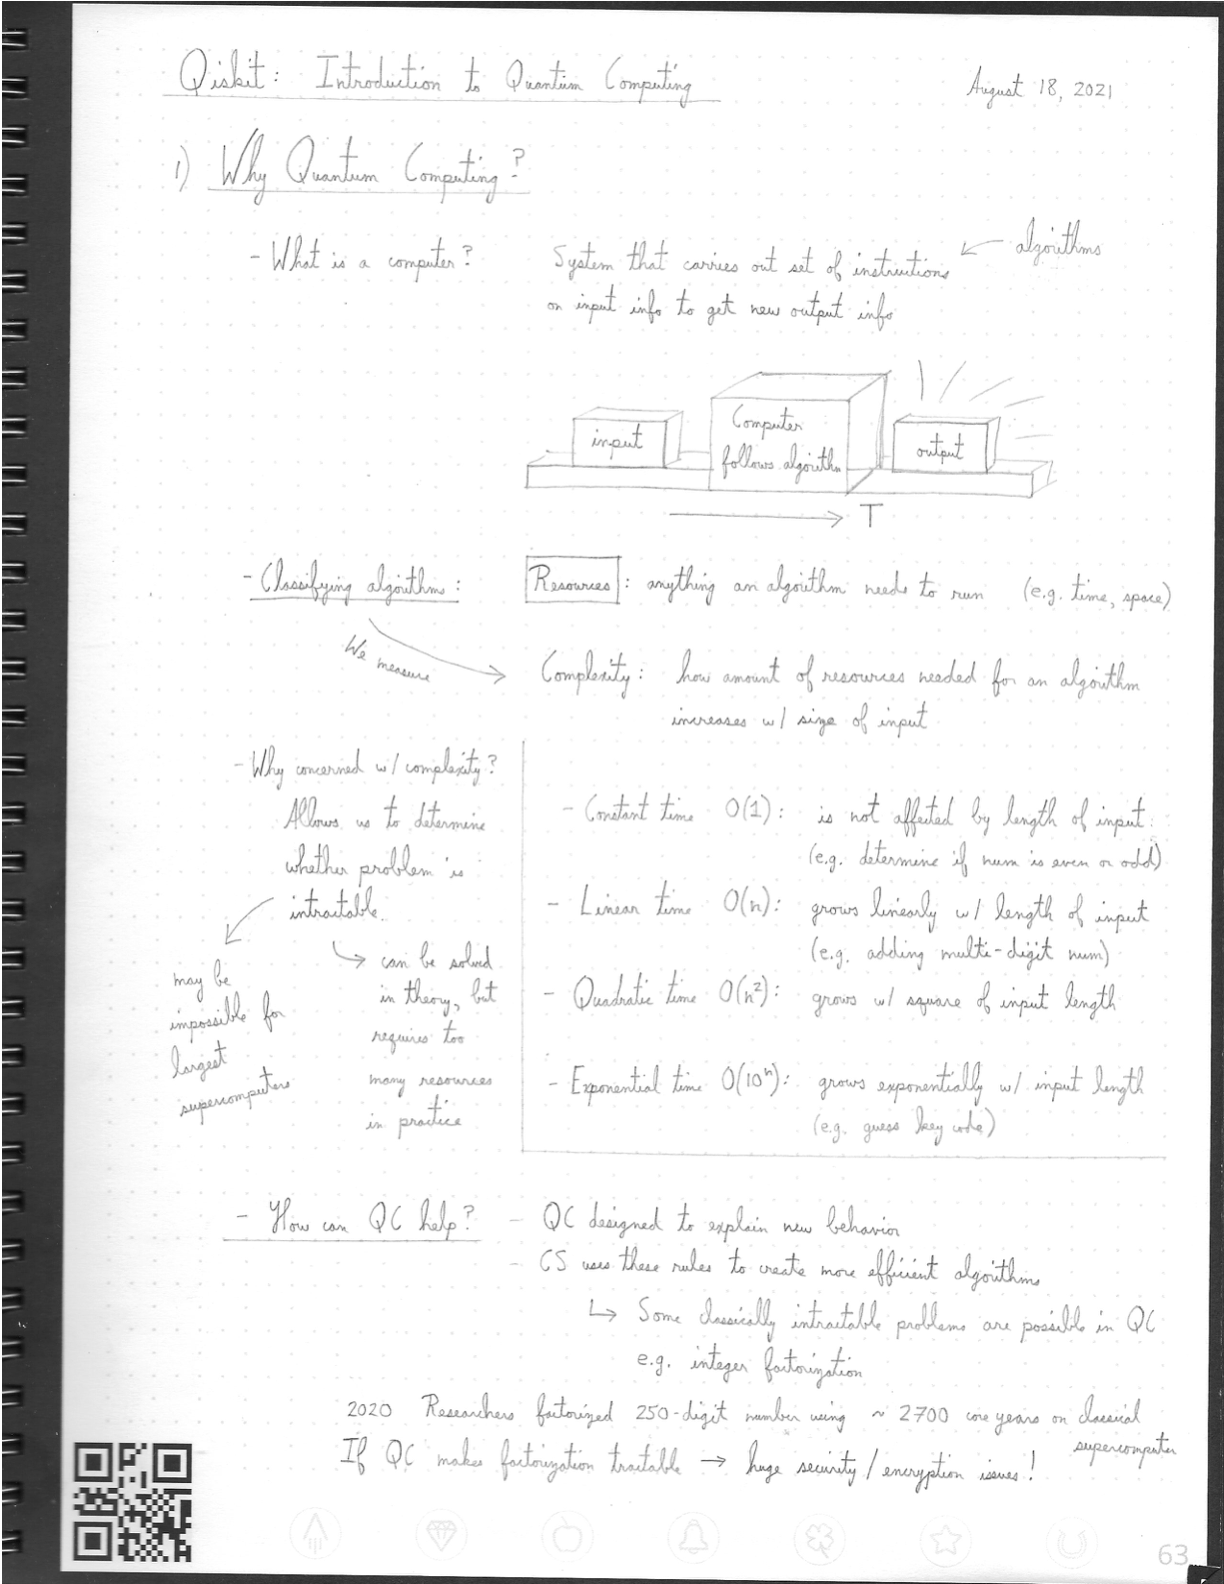 Qiskit: Introduction to Quantum Computing
August 18, 2021
1) Why Quantum Computing?
- What is a computer?
System that carries out set of instructions
← algorithms
on input info to get new output info
input
Computer
follows algorithm
output
→ T
- Classifying algorithms:
Resources: anything an algorithm needs to run (e.g. time, space)
We measure
Complexity: how amount of resources needed for an algorithm
increases w/ size of input
- Why concerned w/ complexity?
Allows us to determine
whether problem is
intractable.
may be
impossible for
largest
supercomputers
↳ can be solved
in theory, but
requires too
many resources
in practice
- Constant time O(1): is not affected by length of input.
(e.g. determine if num is even or odd)
- Linear time O(n): grows linearly w/ length of input
(e.g. adding multi-digit num)
- Quadratic time O(n²): grows w/ square of input length
- Exponential time O(10ⁿ): grows exponentially w/ input length
(e.g. guess key code)
- How can QC help?
- QC designed to explain new behavior
- CS uses these rules to create more efficient algorithms
↳ Some classically intractable problems are possible in QC
e.g. integer factorization
2020 Researchers factorized 250-digit number using ~ 2700 core years on classical
supercomputer
If QC makes factorization tractable → huge security/encryption issues!
63